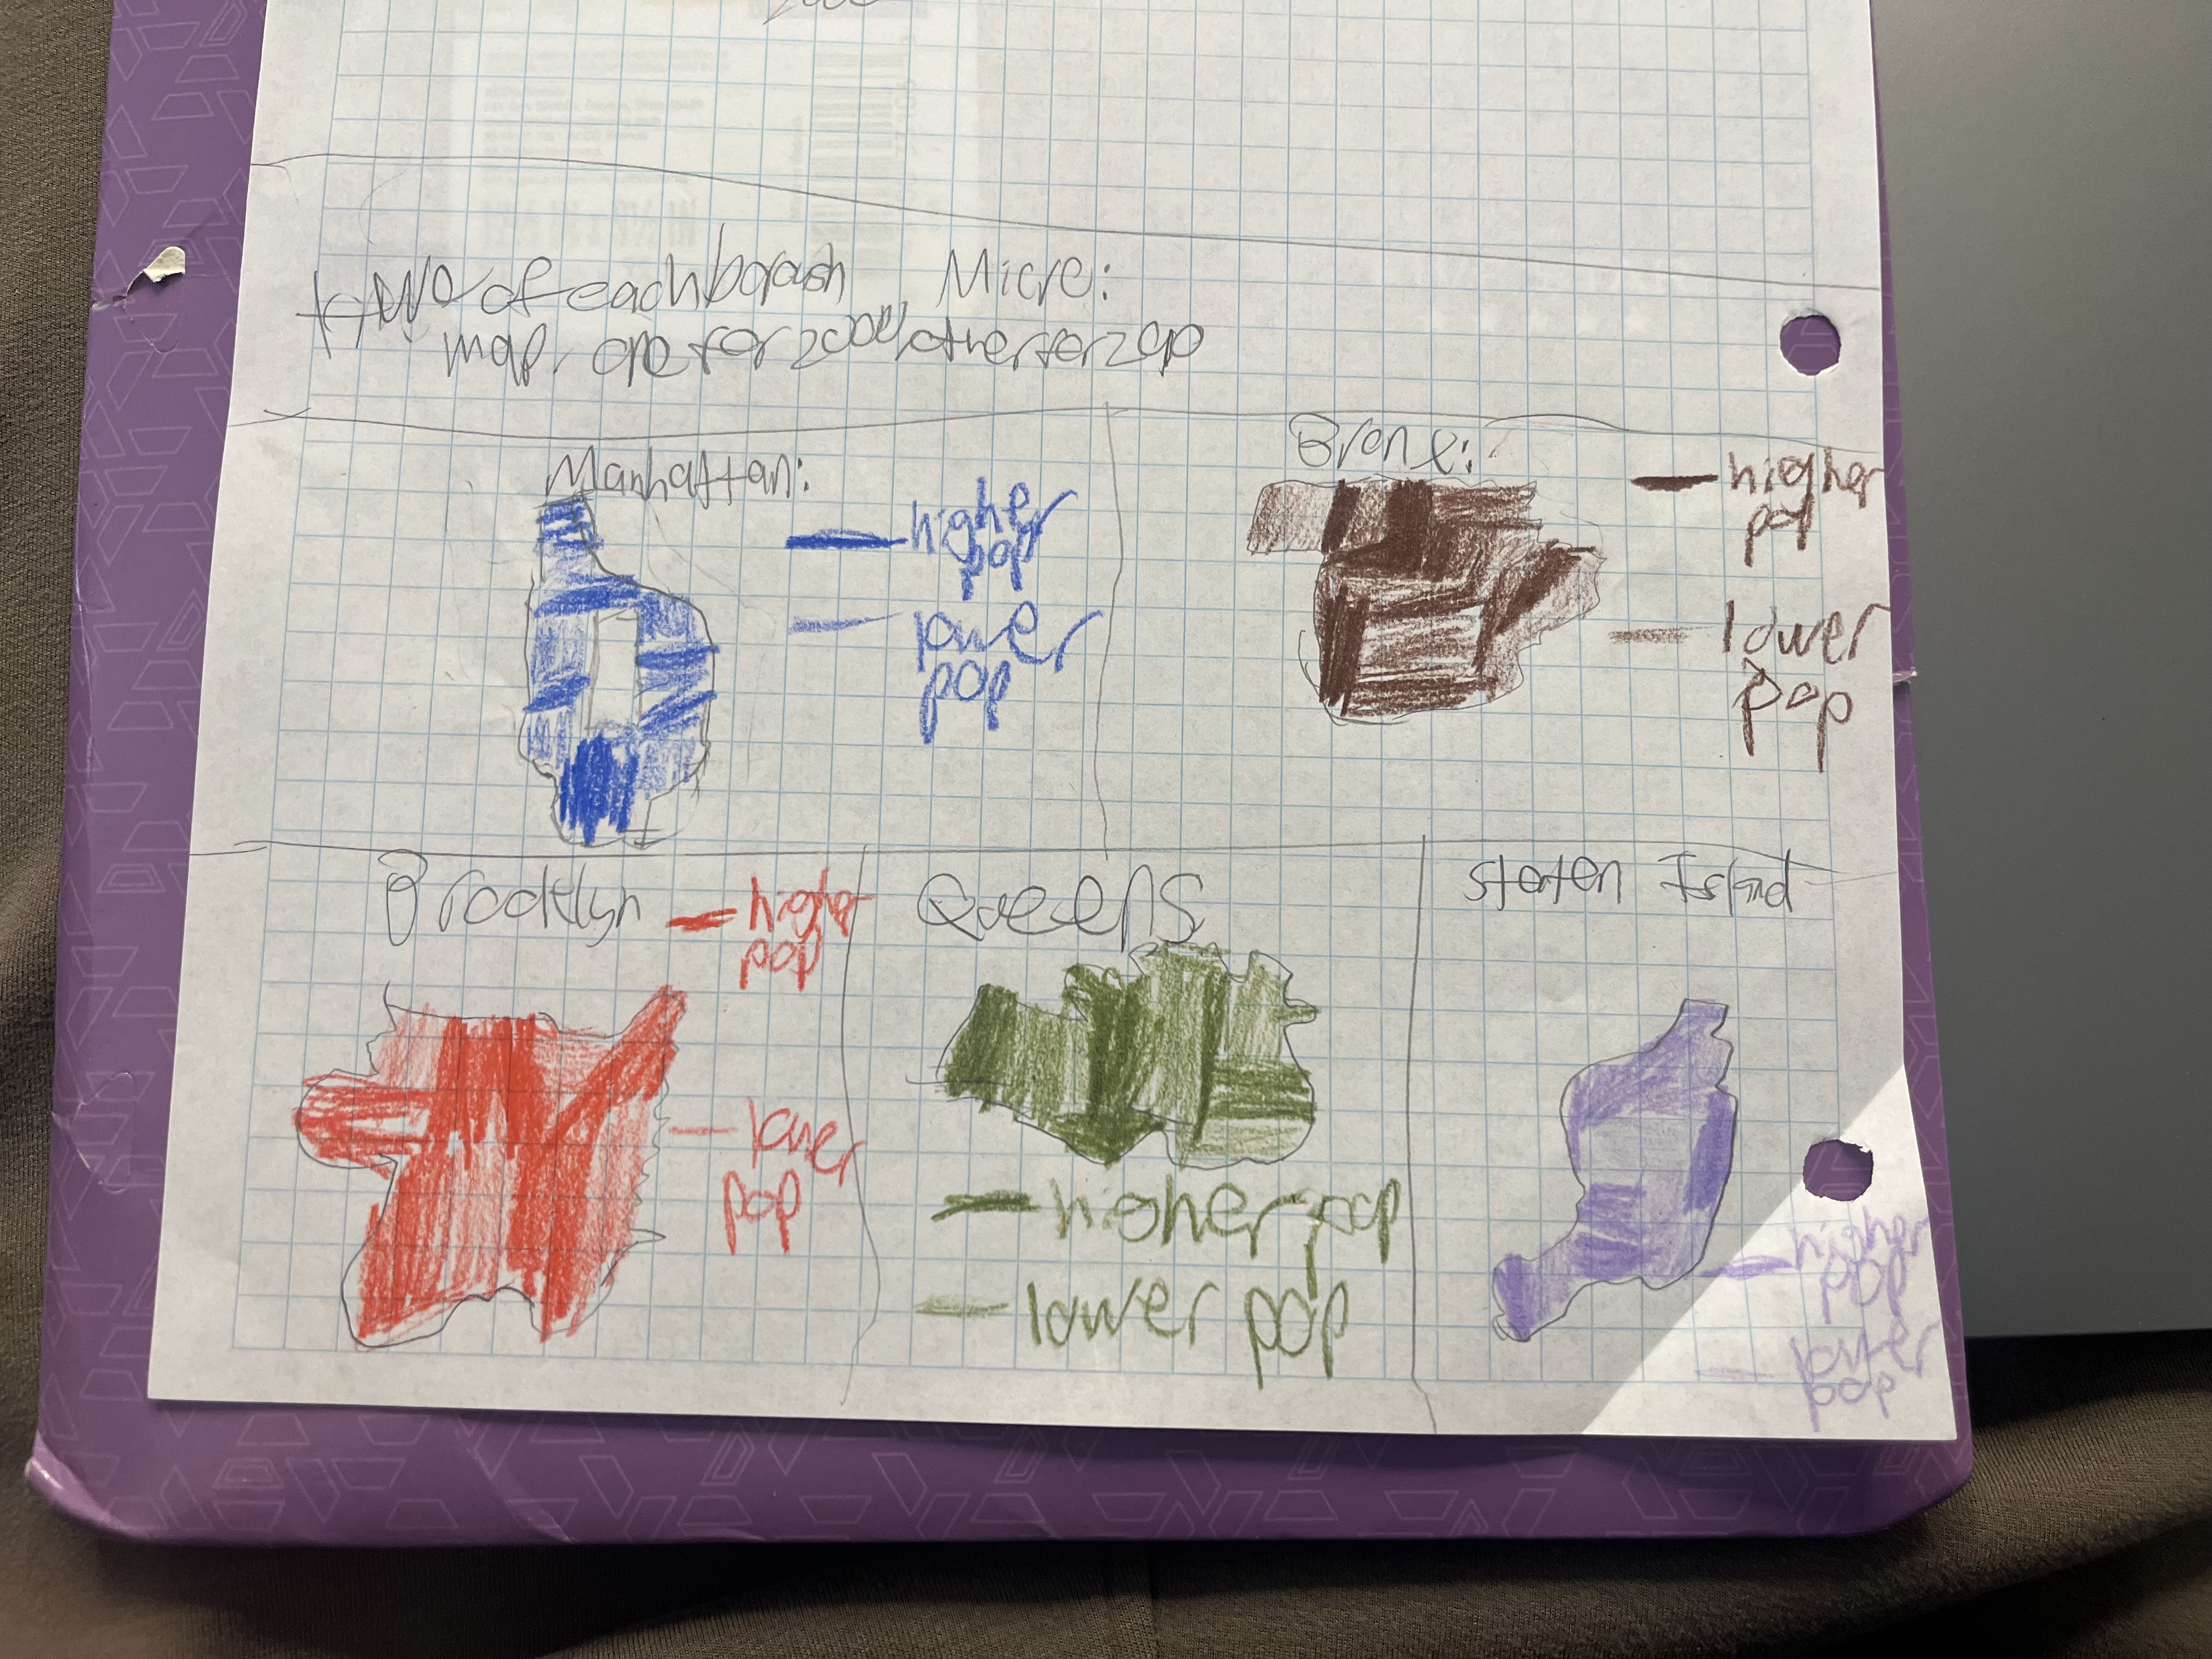 of each
Micro:
map, one for 2000, other for
Manhattan:
higher
pop
lower
pop
Bronx:
higher
pop
lower
pop
Brooklyn
higher
pop
lower
pop
Queens
higher pop
lower pop
Staten Island
higher
pop
lower
pop